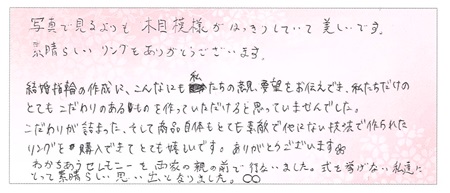 写真で見るよりも 木目模様が はっきりしていて 美しいです。
素晴らしい リングをありがとうございます。
結婚指輪の作成に、こんなにも私たちの意見、要望をお伝えでき、私たちだけの
とてもこだわりのあるものを作っていただけると思っていませんでした。
こだわりが詰まった、そして商品自体もとても素敵で他にない技法で作られた
リングを購入できてとても嬉しいです。ありがとうございます
わかちあうセレモニーを両家の親の前で行ないました。式を挙げない私達に
とって素晴らしい思い出となりました。